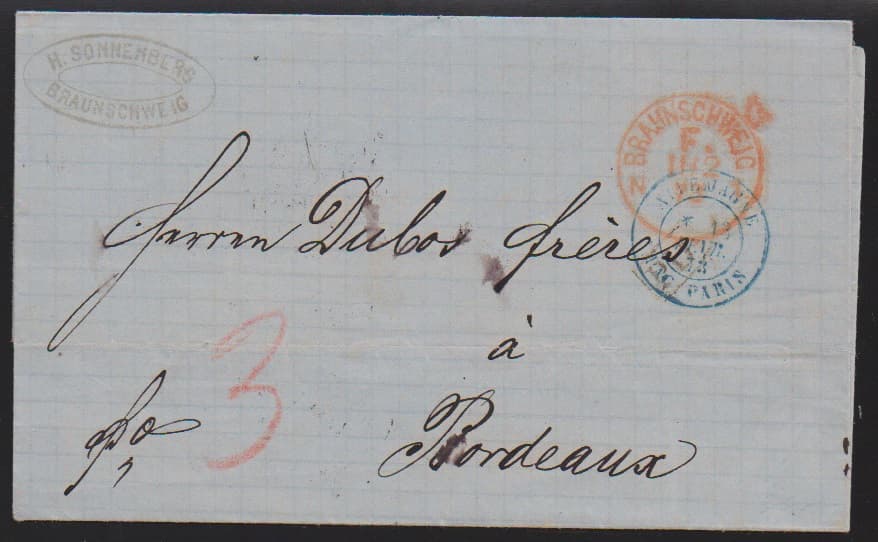 H. SONNENBERG
BRAUNSCHWEIG
BRAUNSCHWEIG
F.
ALLEMAGNE
PARIS
Herren Dubos frères
à
Bordeaux
fco
3